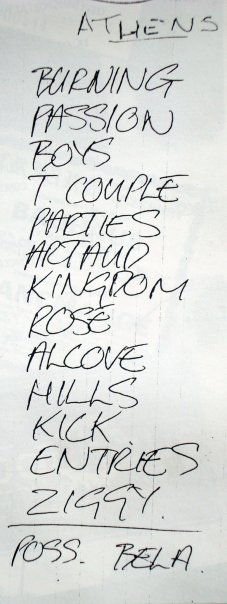 ATHENS
BURNING
PASSION
BOYS
T. COUPLE
PARTIES
ARTAUD
KINGDOM
ROSE
ALCOVE
HILLS
KICK
ENTRIES
ZIGGY.
POSS. BELA.